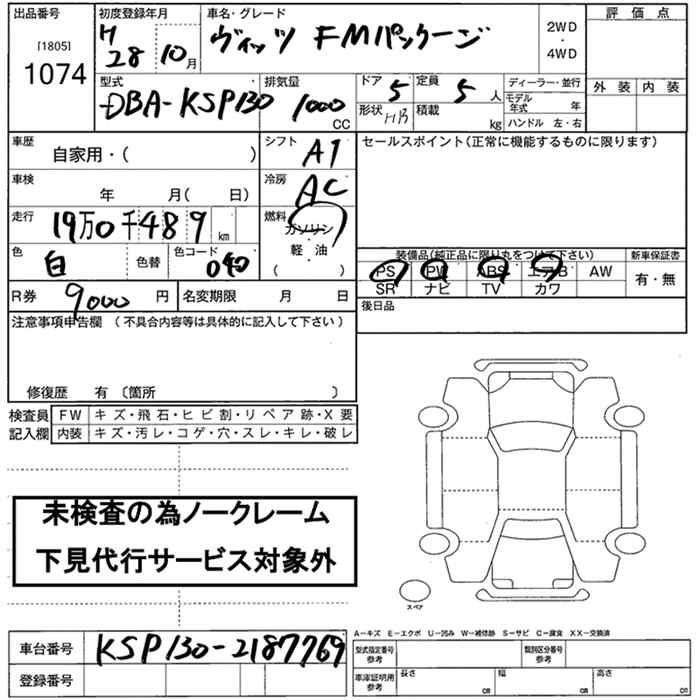 出品番号 初度登録年月 車名・グレード 評価点
[1805] H 28 10月 ヴィッツ FMパッケージ 2WD・4WD
1074 外装 内装
型式 排気量 ドア 定員 ディーラー・並行
DBA-KSP130 1000 CC 5 5人 モデル年式 年
形状 H/B 積載 kg ハンドル 左・右
車歴 自家用・( ) シフト AT セールスポイント(正常に機能するものに限ります)
車検 年 月( 日) 冷房 AC
走行 19万0千489km 燃料 ガソリン・軽油 ( )
色 白 色替 色コード 040 装備品(純正品に限り丸をつけて下さい) 新車保証書
PS PW ABS エアB AW 有・無
SR ナビ TV カワ
R券 9000円 名変期限 月 日 後日品
注意事項申告欄(不具合内容等は具体的に記入して下さい)
修復歴 有〔箇所 〕
検査員 FW キズ・飛石・ヒビ割・リペア跡・X要
記入欄 内装 キズ・汚レ・コゲ・穴・スレ・キレ・破レ
未検査の為ノークレーム
下見代行サービス対象外
スペア
A-キズ E-エクボ U-凹み W-補修跡 S-サビ C-腐食 XX-交換済
車台番号 KSP130-2187769 型式指定番号 参考 類別区分番号 参考
登録番号 車庫証明用 参考 長さ cm 幅 cm 高さ cm